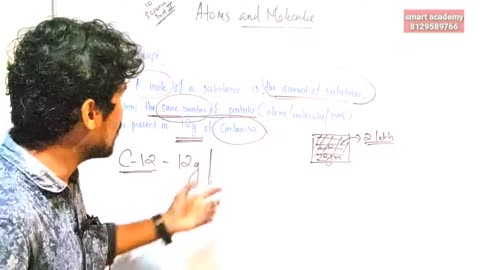 smart academy
8129589766
10
Science
Part II
Atoms and Molecule
mole of a substance is the amount of substance
the same number of particles (atom/molecules/ions)
present in 12g of Carbon-12
2 lakh
C-12 - 12g